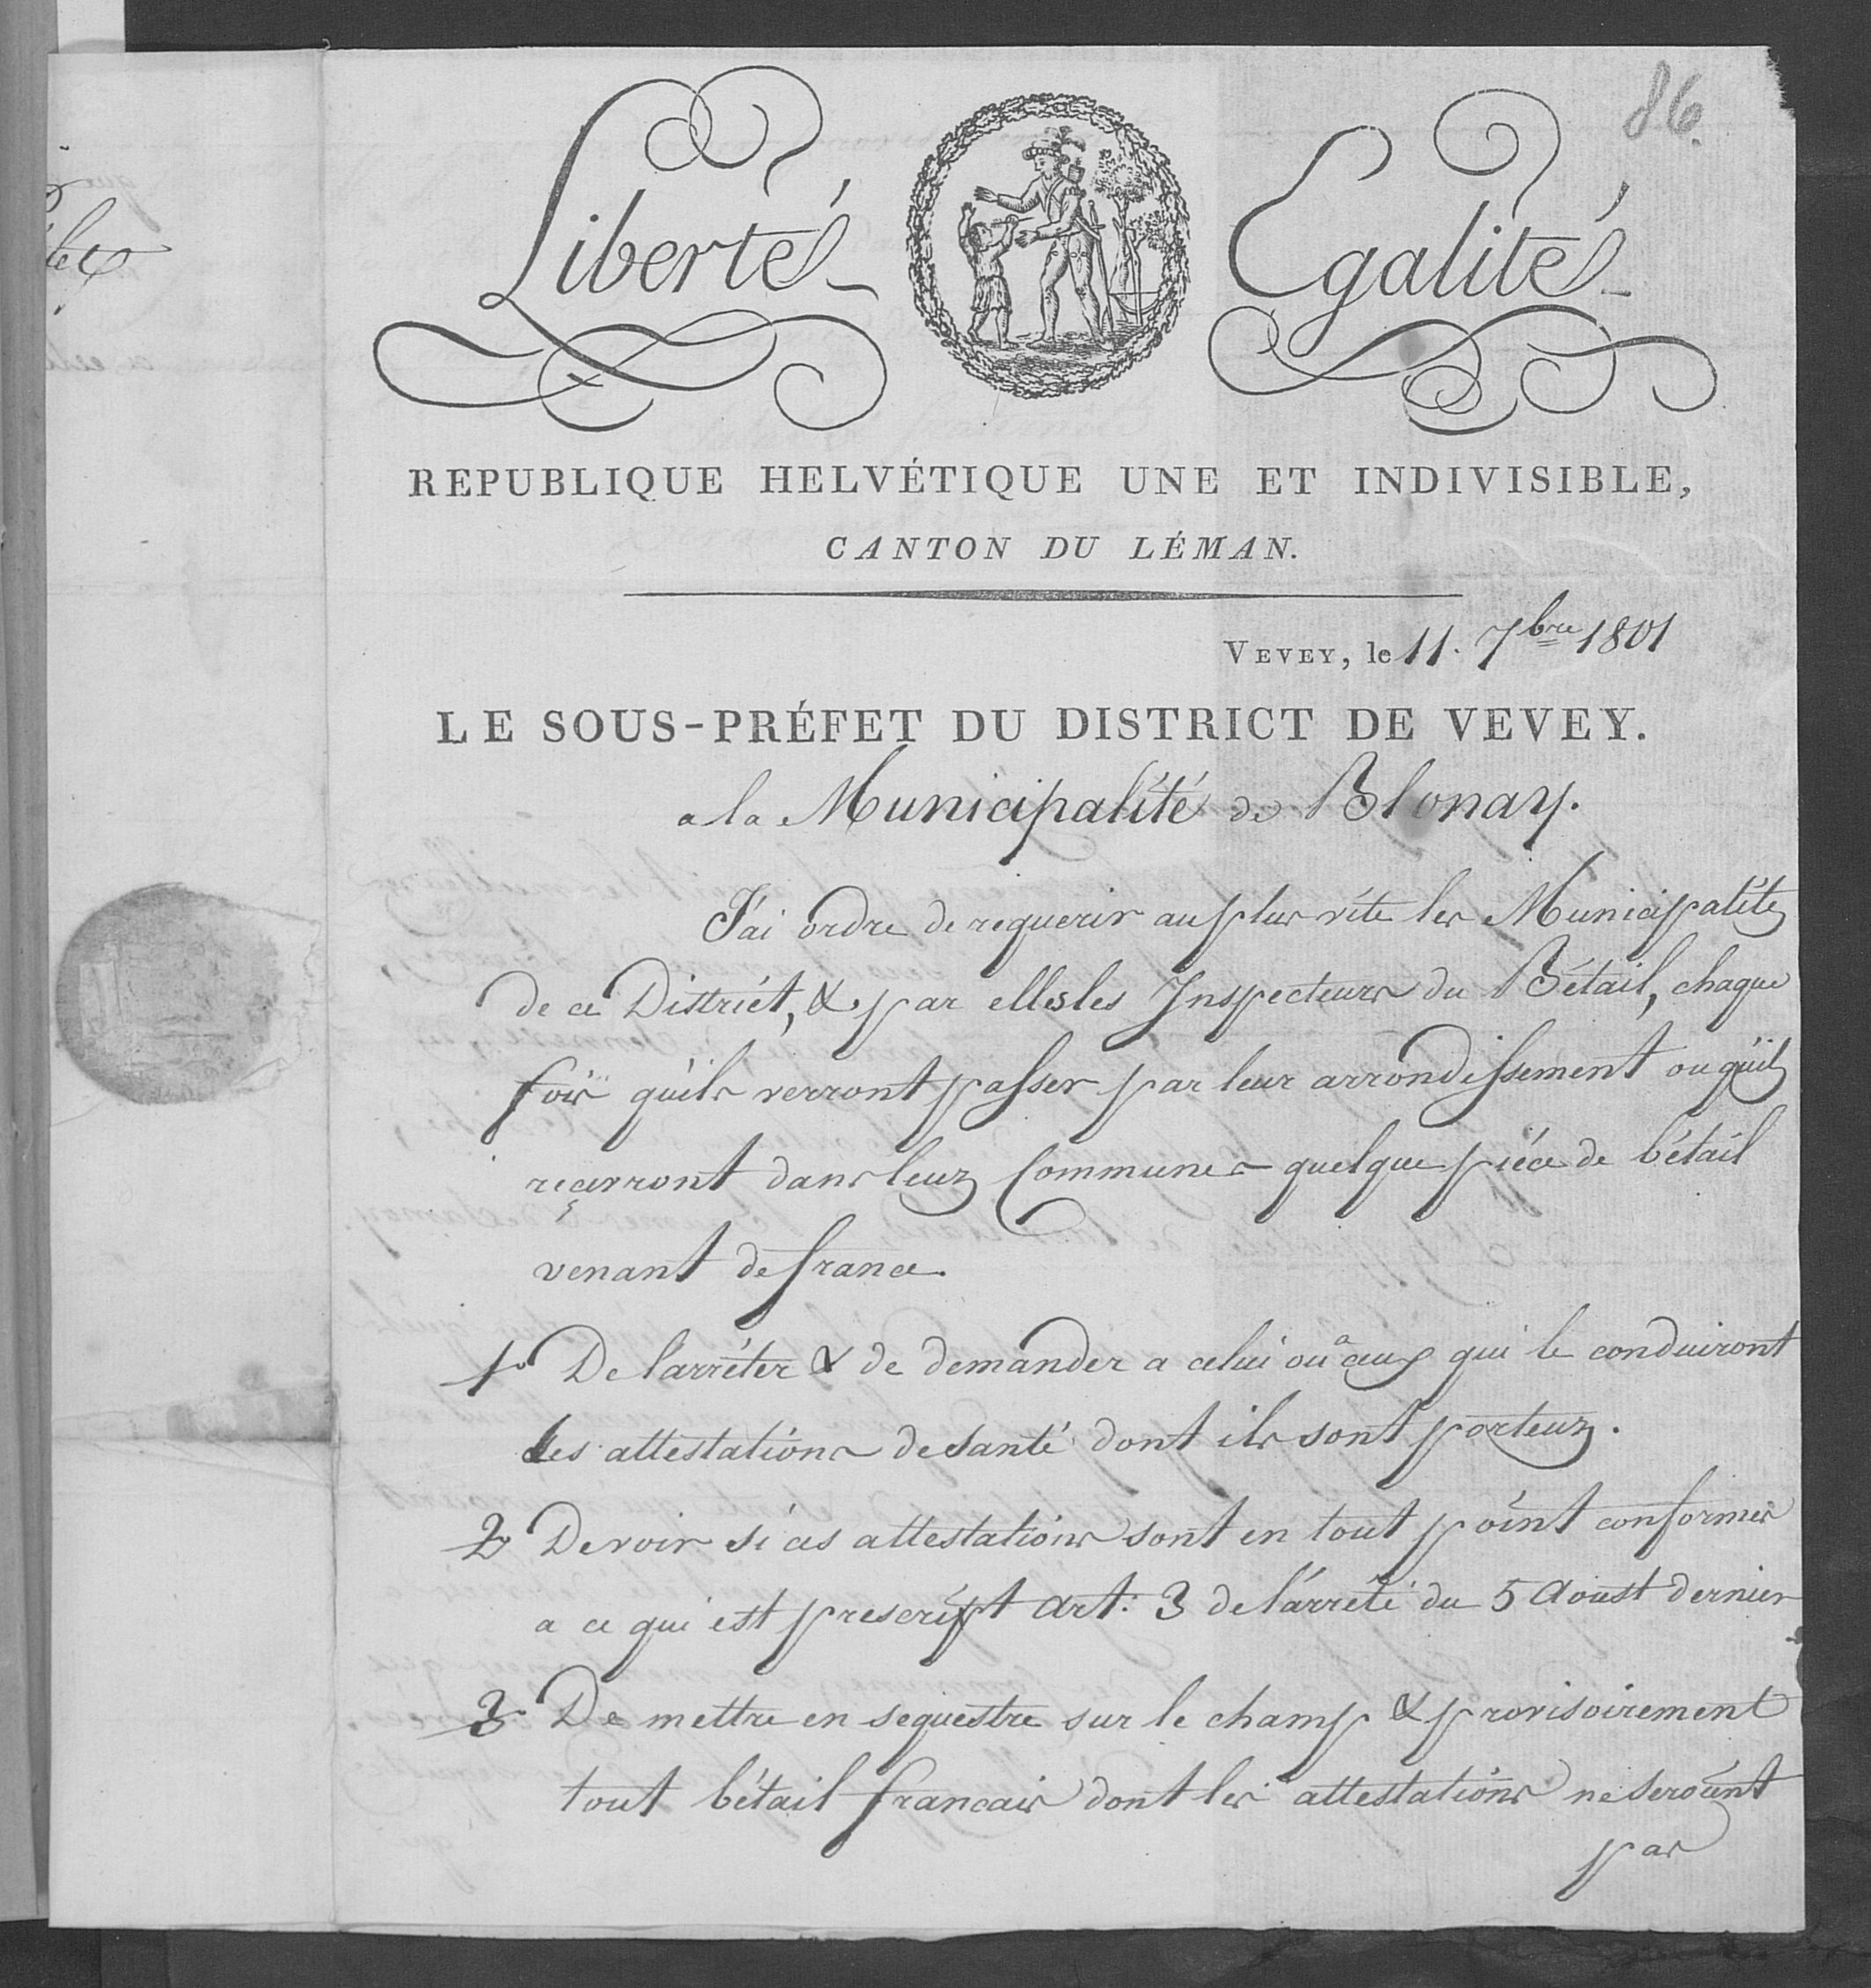 86.
Liberté
Egalité
REPUBLIQUE HELVÉTIQUE UNE ET INDIVISIBLE,
CANTON DU LÉMAN.
VEVEY, le 11. 7bre 1801
LE SOUS-PRÉFET DU DISTRICT DE VEVEY.
a la Municipalité de Blonay.
J'ai ordre de requerir au plus vite les Municipalités
de ce District, & par elles les Inspecteurs du Bétail, chaque
fois qu'ils verront passer par leur arrondissement ou qu'ils
recevront dans leurs Communes quelque piéce de bétail
venant de france.
1o De l'arrêter & de demander a celui ou a ceux qui le conduiront
les attestations de santé dont ils sont porteurs.
2o De voir si ces attestations sont en tout point conformes
a ce qui est prescript art: 3 de l'arrêté du 5 Aoust dernier
3o De mettre en sequestre sur le champ & provisoirement
tout bétail francais dont les attestations ne seroient
pas